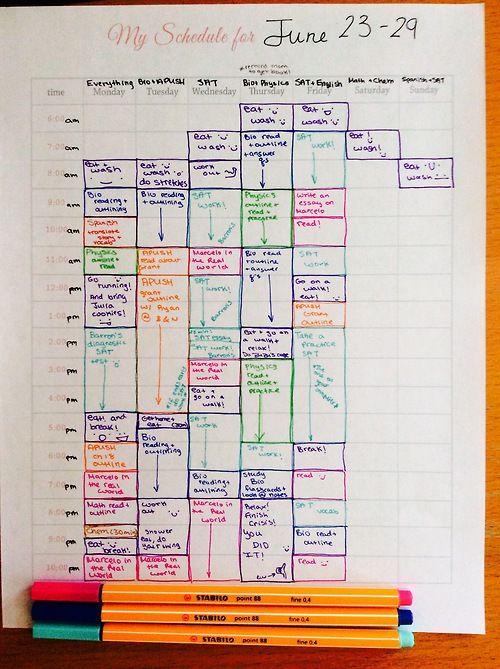 My Schedule for June 23-29
*remind mom
to get book!
Everything
Bio + APUSH
SAT
Bio + Physics
SAT + English
Math + Chem
Spanish + SAT
time
Monday
Tuesday
Wednesday
Thursday
Friday
Saturday
Sunday
6:00 am
am
8:00 am
9:00 am
10:00 am
11:00 am
12:00 pm
1:00 pm
2:00 pm
3:00 pm
4:00 pm
5:00 pm
6:00 pm
7:00 pm
8:00 pm
9:00 pm
10:00 pm
eat +
wash
Bio
reading +
outlining
Spanish
translate
story +
vocab
Physics
outline +
read
Go
running!
And bring
Julia
cookies!
Barron's
diagnostic
SAT
test
eat! and
break!
APUSH
ch 18
outline
Marcelo in
the real
world
Math read +
outline
Chem (30 min)
eat
break!
Marcelo in
the Real
World
eat +
wash
do stretches
Bio reading
+ outlining
APUSH
read about
grant
APUSH
grant
outline
w/ Ryan
@ B & N
Get home +
eat
Bio
reading +
outlining
work
out
shower
eat, do
your thing
Marcelo in
the Real
World
eat
wash
work
out
SAT
work!
Barrons
Marcelo in
the Real
world
SAT
work!
Barrons
SAT essay
SAT work!
Barrons
Marcelo in
the Real
world
eat +
go on a
walk!
SAT
work
Bio
reading +
outlining
Marcelo in
the Real
World
eat
wash
Bio read
+ outline
+ answer
q's
Physics
outline +
read +
practice
Bio read
+ outline
+ answer
q's
Eat + go on
a walk +
relax!
Physics
read +
outline +
practice
SAT
work!
Study
Bio
flashcards +
look @ notes
Relax!
Finish
Crisis!
You
DID
IT!
eat
wash
SAT
work!
write an
essay on
Marcelo
read!
SAT
work
Go on a
walk!
eat!
APUSH
Grant
Outline
Take a
practice
SAT
Break!
read
SAT
vocab
Bio read +
outline
read
eat!
wash!
eat
wash
STABILO point 88 fine 0,4
STABILO point 88 fine 0,4
STABILO point 88 fine 0,4